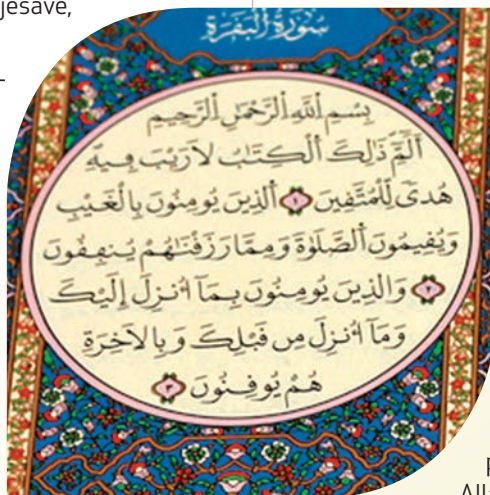 jesave,
سُورَةُ الْبَقَرَةِ
بِسْمِ اِ۬للَّهِ اِ۬لرَّحْمَٰنِ اِ۬لرَّحِيمِ
أَلَٓمِّٓ ذَٰلِكَ اَ۬لْكِتَٰبُ لَا رَيْبَ فِيهِ
هُدىٗ لِّلْمُتَّقِينَ ١ اَ۬لذِينَ يُومِنُونَ بِالْغَيْبِ
وَيُقِيمُونَ اَ۬لصَّلَوٰةَ وَمِمَّا رَزَقْنَٰهُمْ يُنفِقُونَ
٢ وَالذِينَ يُومِنُونَ بِمَآ أُنزِلَ إِلَيْكَ
وَمَآ أُنزِلَ مِن قَبْلِكَ وَبِالَاخِرَةِ
هُمْ يُوقِنُونَ ٣
All